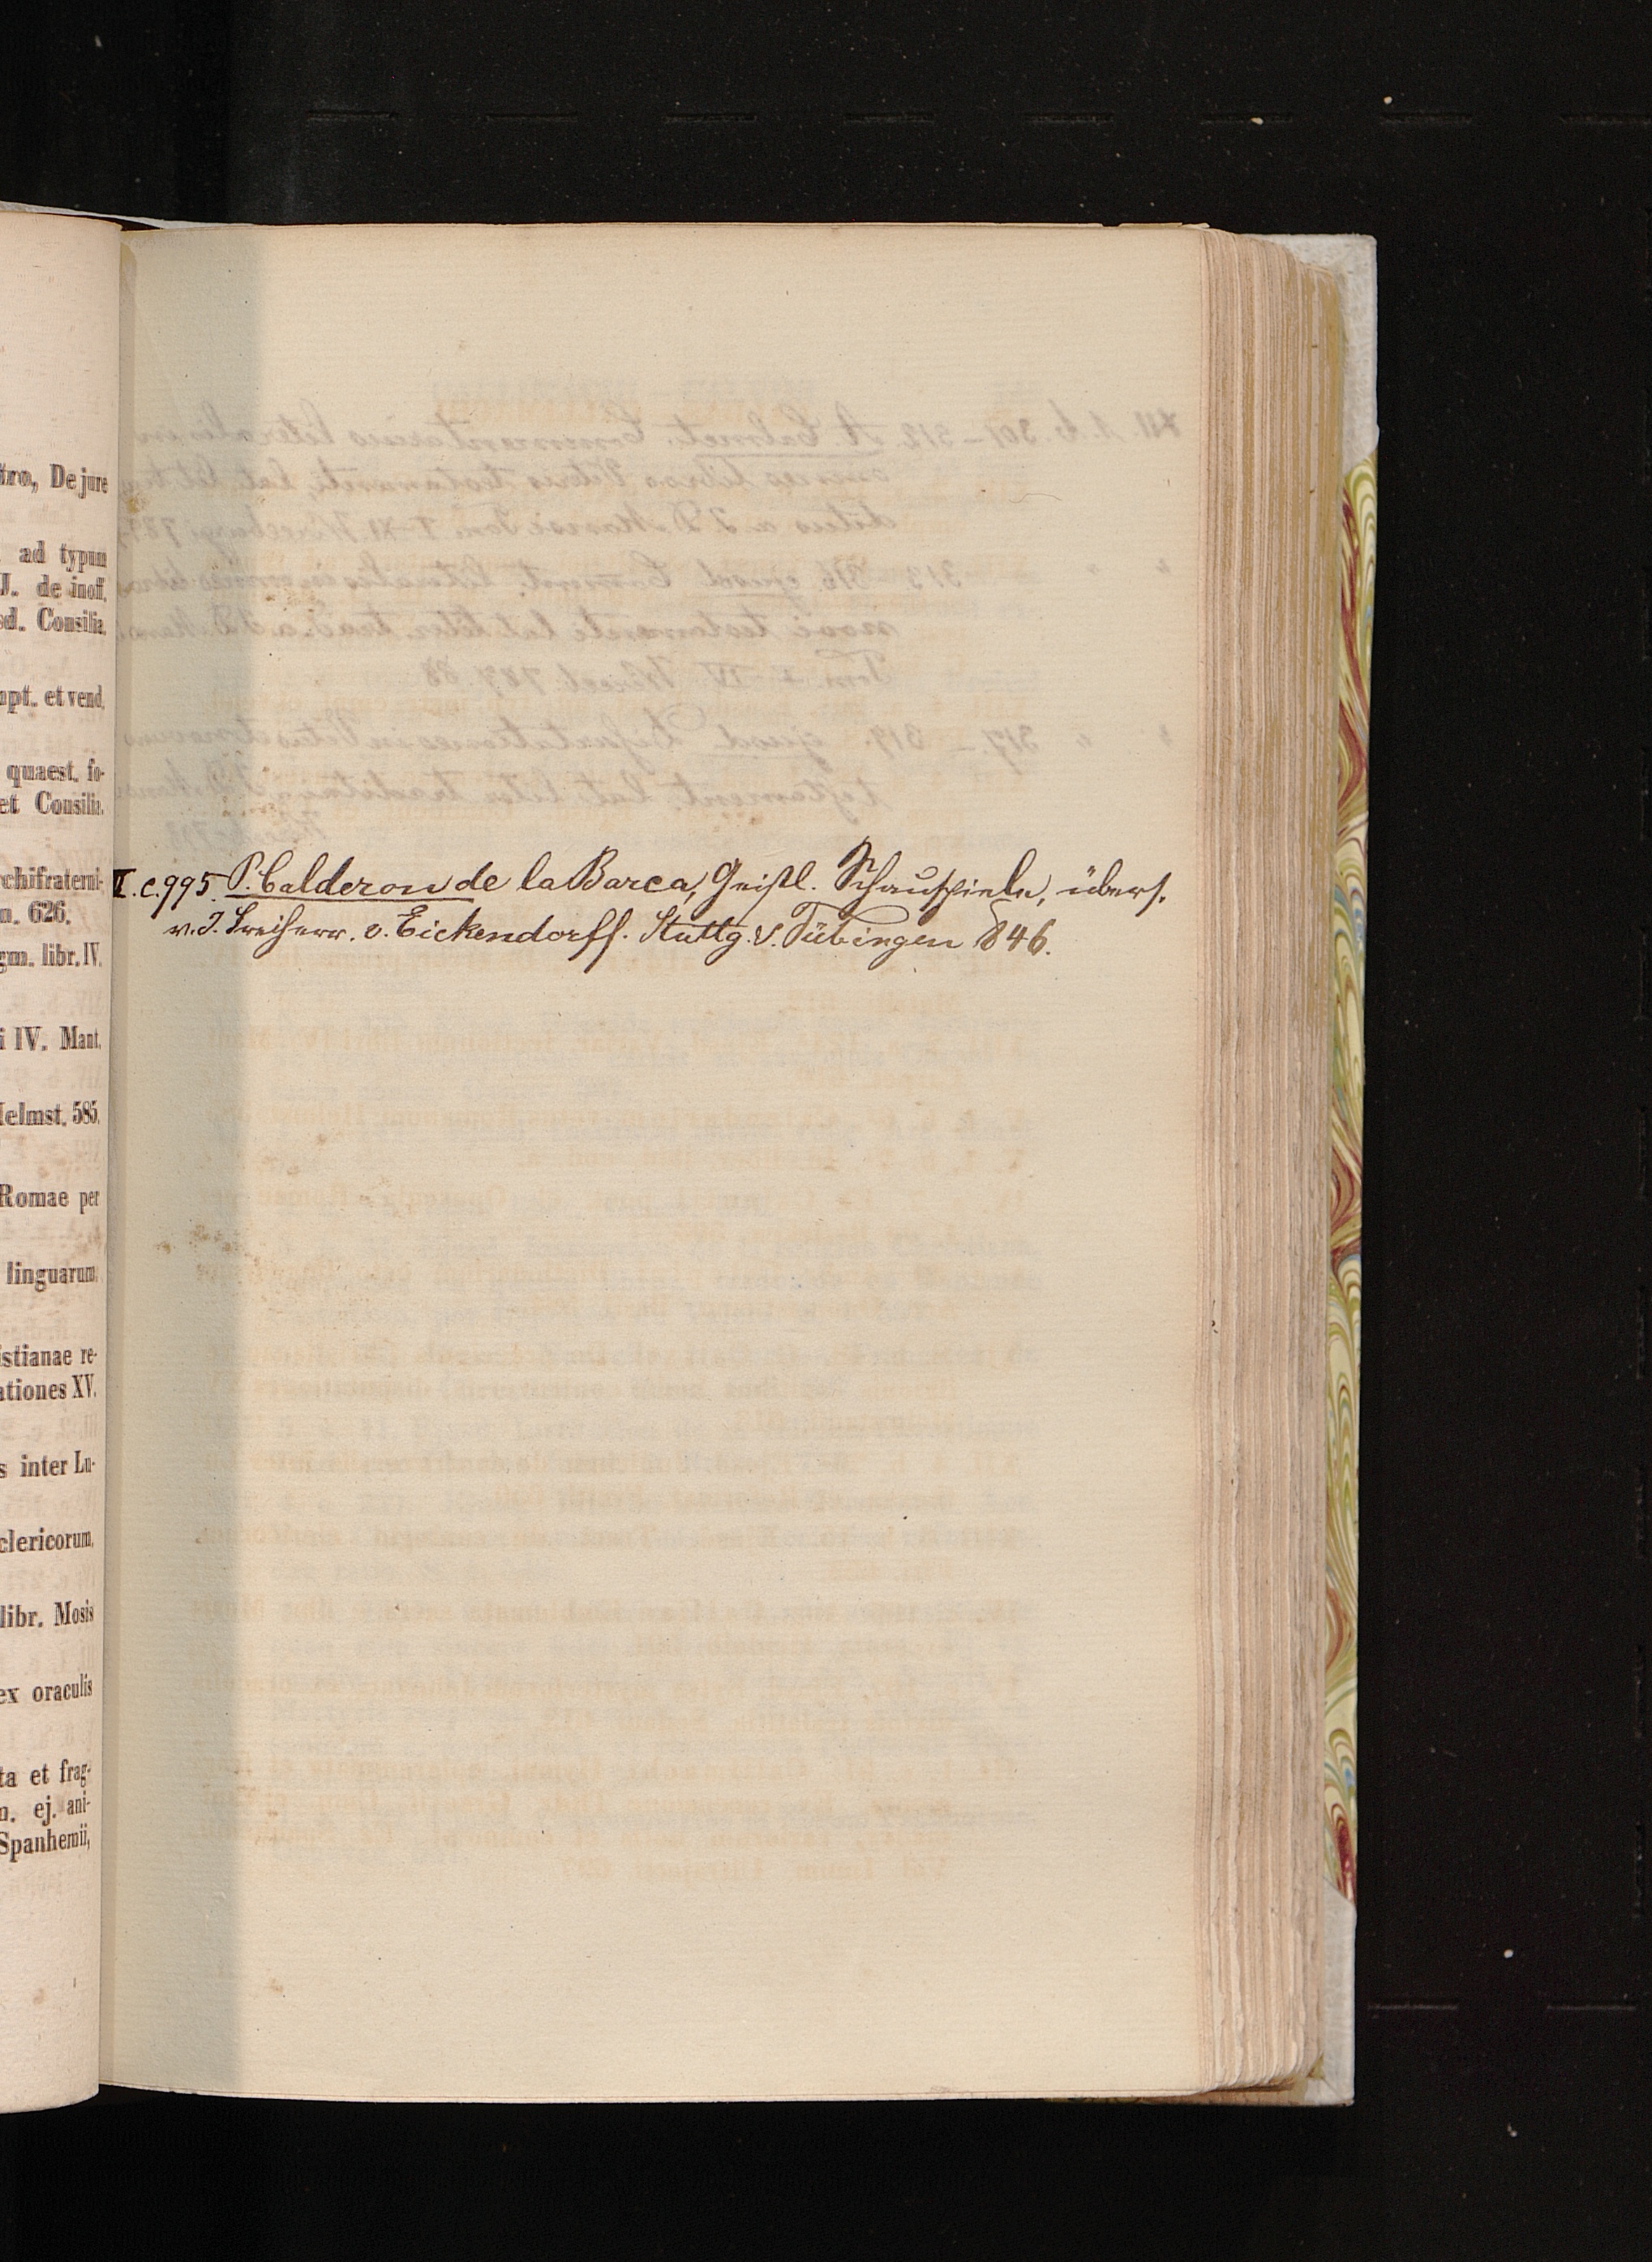 tro, De jure
ad typum
J. de inoff.
sd. Consilia.
mpt. et vend.
quaest. fo-
et Consilia.
rchifraterni-
n. 626.
gm. libr. IV.
i IV. Mant.
Helmst. 585.
Romae per
linguarum
istianae re-
ationes XV.
s inter Lu-
clericorum,
libr. Mosis
ex oraculis
ta et frag-
n. ej. ani-
Spanhemii,
II. c. 995. P. Calderon de la Barca, Geistl. Schauspiele, übers.
v. J. Freiherr. v. Eickendorff. Stuttg. u. Tübingen 846.